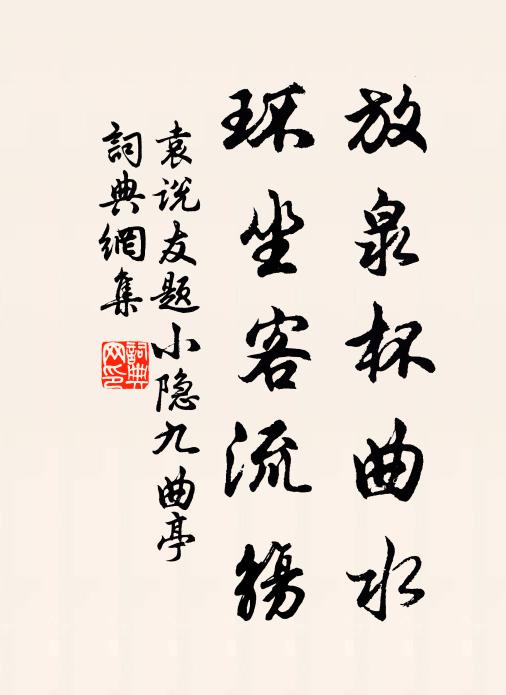 放泉杯曲水
环坐客流觴
袁说友题小隐九曲亭
詞典網集
詞典网印